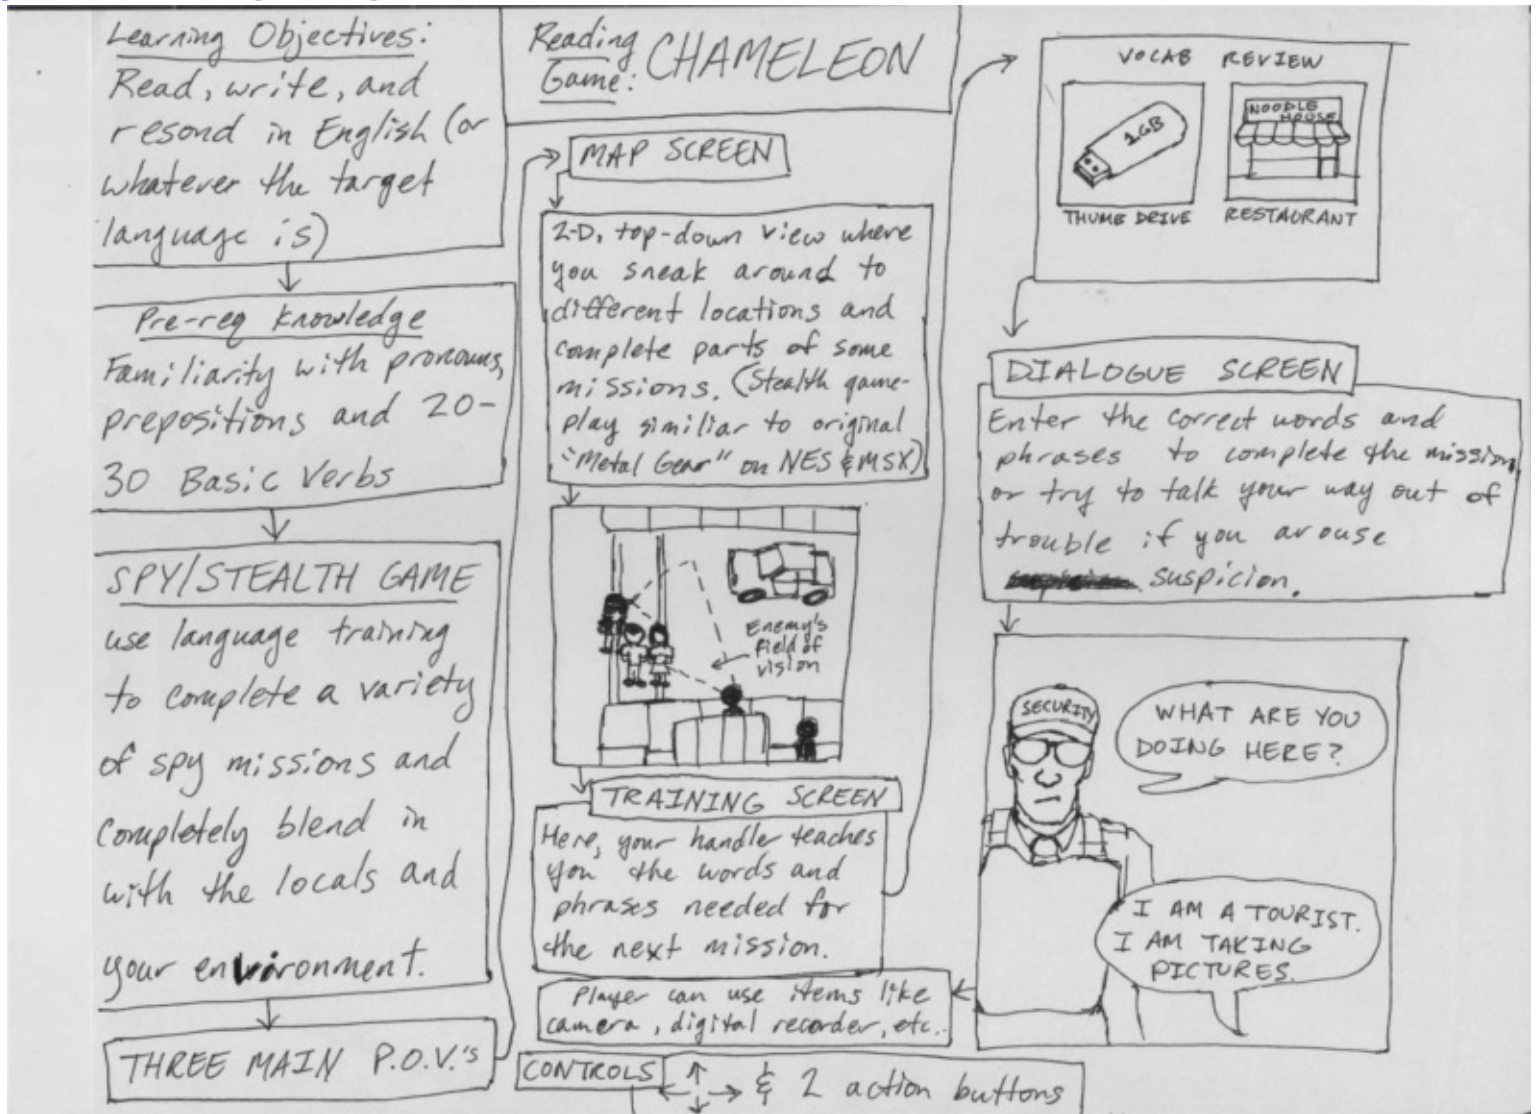 Learning Objectives:
Read, write, and
resond in English (or
whatever the target
language is)
Pre-req knowledge
Familiarity with pronouns,
prepositions and 20-
30 Basic Verbs
SPY/STEALTH GAME
use language training
to complete a variety
of spy missions and
completely blend in
with the locals and
your environment.
THREE MAIN P.O.V.'s
Reading
Game: CHAMELEON
MAP SCREEN
2-D, top-down view where
you sneak around to
different locations and
complete parts of some
missions. (Stealth game-
play similiar to original
"Metal Gear" on NES & MSX)
Enemy's
field of
vision
TRAINING SCREEN
Here, your handler teaches
you the words and
phrases needed for
the next mission.
Player can use items like
camera, digital recorder, etc.
CONTROLS & 2 action buttons
VOCAB REVIEW
1GB
NOODLE
HOUSE
THUMB DRIVE RESTAURANT
DIALOGUE SCREEN
Enter the correct words and
phrases to complete the mission,
or try to talk your way out of
trouble if you arouse
suspicion.
SECURITY
WHAT ARE YOU
DOING HERE?
I AM A TOURIST.
I AM TAKING
PICTURES.